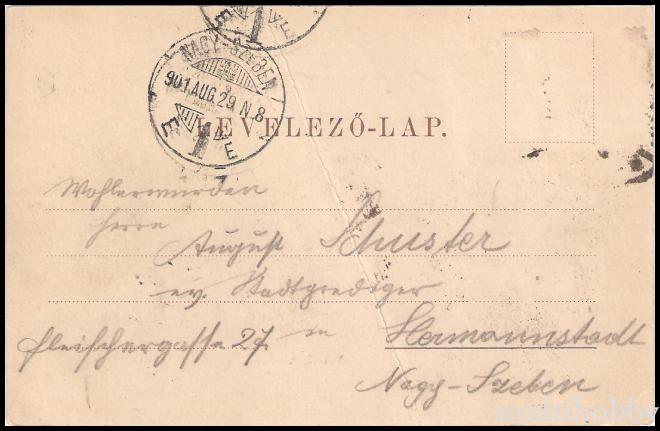 NAGY-SZEBEN
901 AUG. 29 N. 8
LEVELEZŐ-LAP.
Wohlerwürden
Herrn
August Schuster
ev. Stadtprediger
Fleischergasse 27. in Hermannstadt
Nagy-Szeben
multihobby